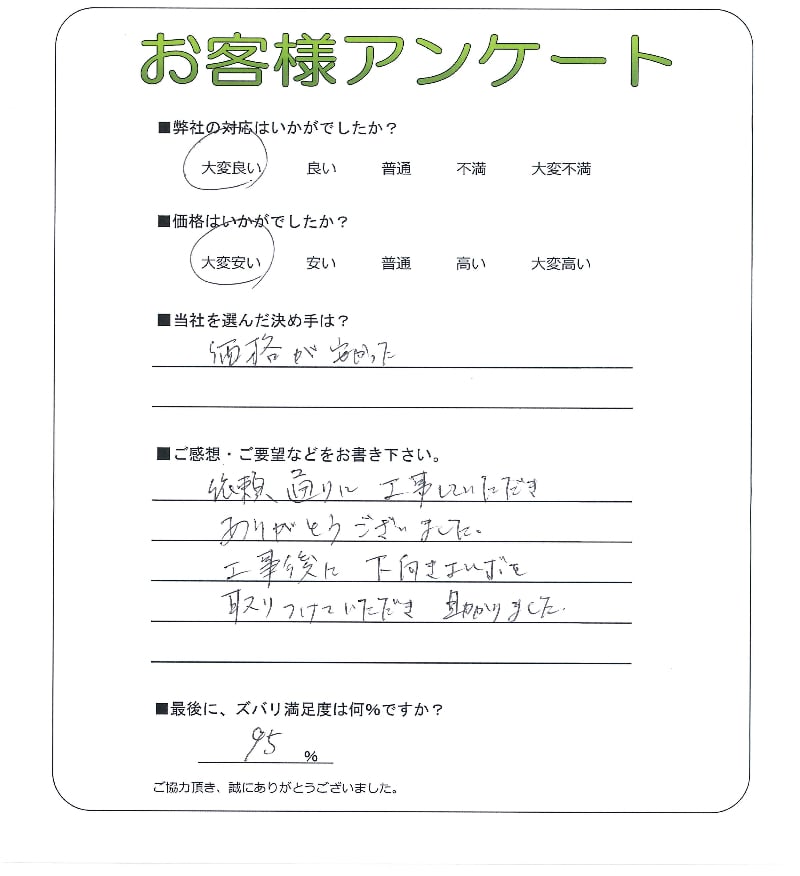 お客様アンケート
■弊社の対応はいかがでしたか？
大変良い 良い 普通 不満 大変不満
■価格はいかがでしたか？
大変安い 安い 普通 高い 大変高い
■当社を選んだ決め手は？
価格が安かった
■ご感想・ご要望などをお書き下さい。
依頼通りに工事していただき
ありがとうございました。
工事後に下向き
取りつけていただき 助かりました.
■最後に、ズバリ満足度は何%ですか？
95 %
ご協力頂き、誠にありがとうございました。